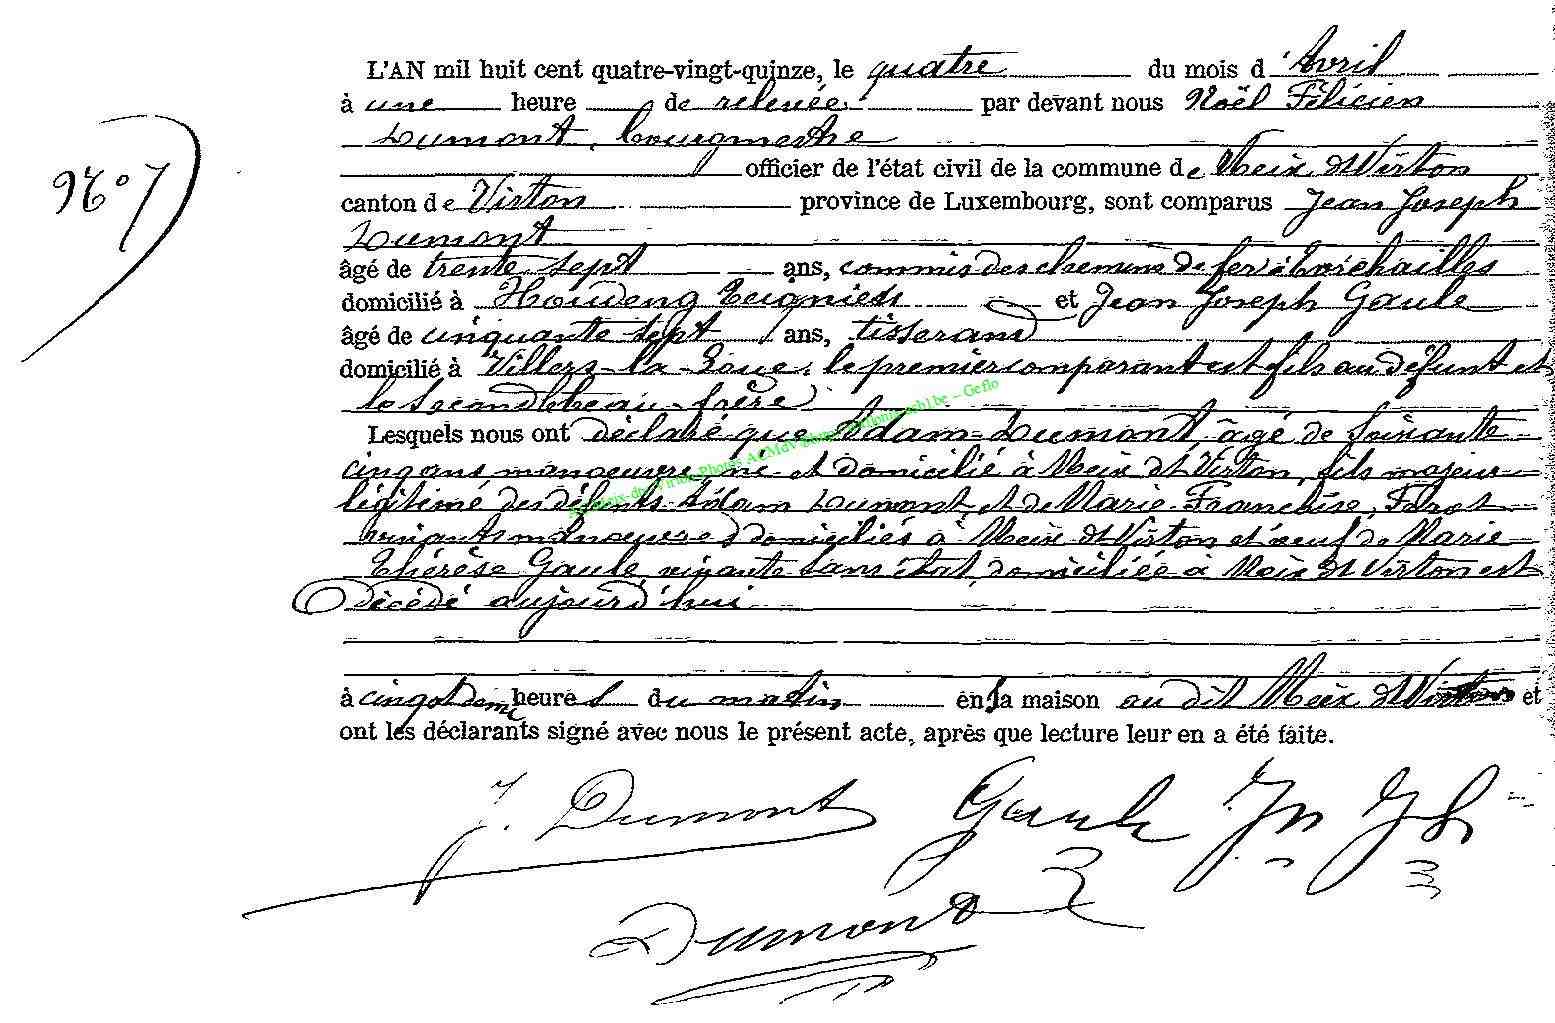 L'AN mil huit cent quatre-vingt-quinze, le quatre du mois d'Avril
à une heure de relevée par devant nous Noël Félicien
Dumont, bourgmestre
officier de l'état civil de la commune de Meix dt Virton
canton de Virton province de Luxembourg, sont comparus Jean Joseph
Dumont
N° 7
âgé de trente sept ans, commis des chemins de fer à
domicilié à Houdeng et Jean Joseph Gaule
âgé de cinquante sept ans, tisserand
domicilié à Villers-la-Loue; le premier comparant est fils au défunt et
le second beau-frère
Lesquels nous ont déclaré que Adam Dumont, âgé de soixante
cinq ans manoeuvre, né et domicilié à Meix dt Virton, fils majeur
légitime des défunts Adam Dumont, et de Marie Françoise,
manoeuvres domiciliés à Meix dt Virton et veuf de Marie
Thérèse Gaule, vivante sans état, domiciliée à Meix dt Virton est
décédé aujourd'hui
à cinq et demi heures du matin en la maison au dit Meix dt Virton et
ont les déclarants signé avec nous le présent acte, après que lecture leur en a été faite.
J. Dumont Gaule Jn Jh
Dumont